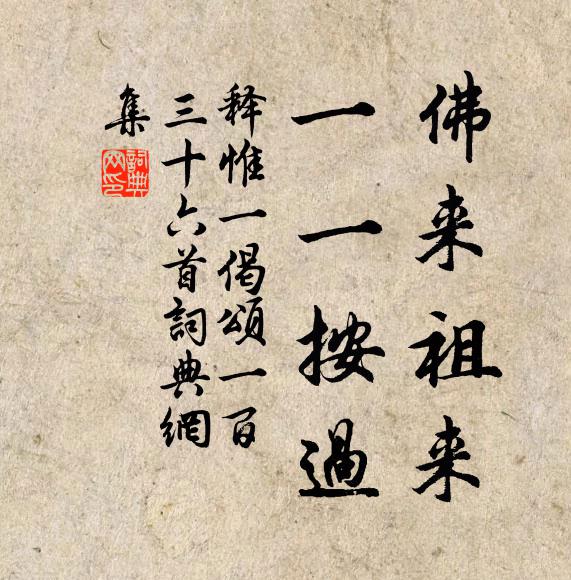 佛来祖来
一一按過
释惟一偈頌一百
三十六首詞典網
集
詞典网印